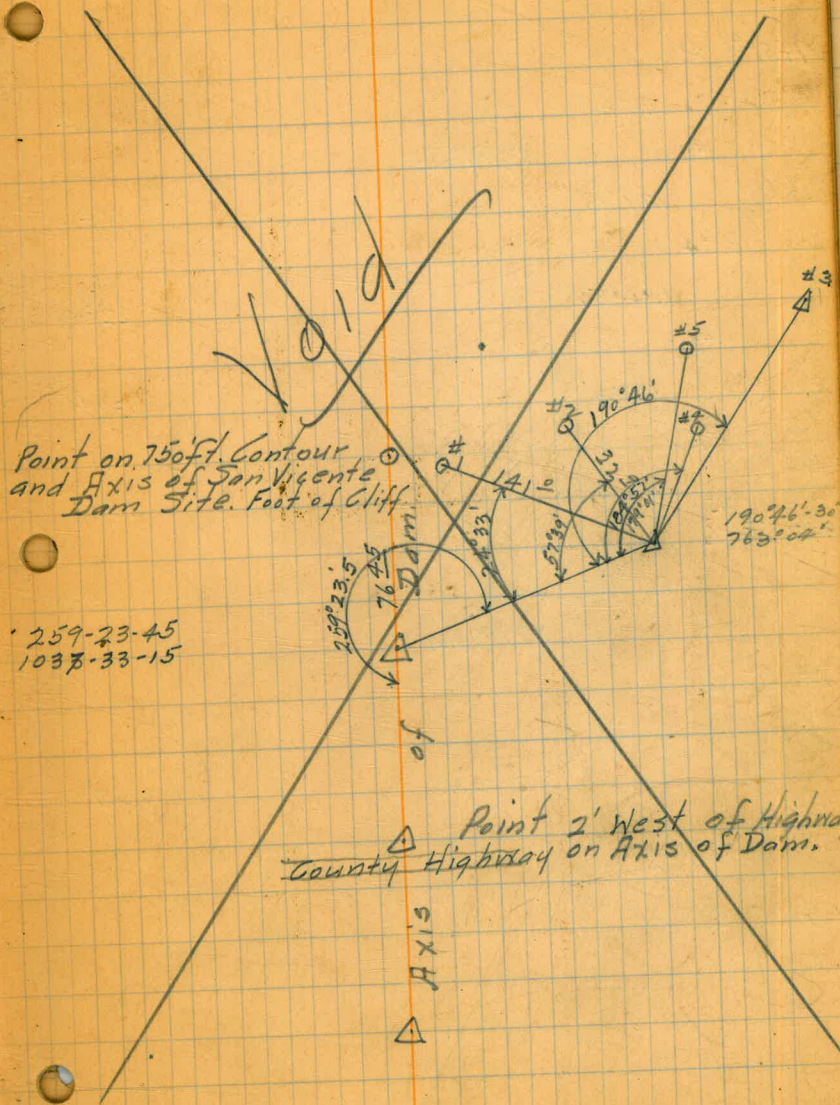 Void
#3
#5
#2
190°46'
#4
#1
Point on 750ft. Contour
and Axis of San Vicente
Dam Site. Foot of Cliff.
141.0
32
190°46'-30"
763°04'
24°33'
57°39'
259°23.5'
76 45
259-23-45
1037-33-15
Axis of Dam.
Point 2' West of Highwa
County Highway on Axis of Dam.